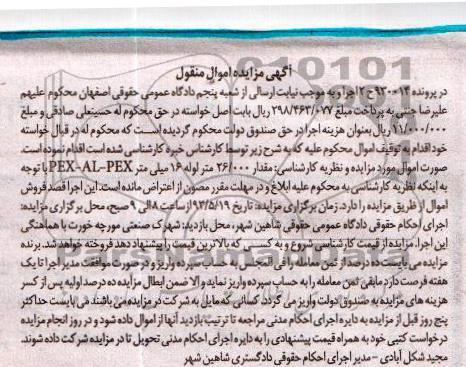 آگهی مزایده اموال منقول
در پرونده ۹۳۰۰۱۳ ح ۲ اجرا و به موجب نیابت ارسالی از شعبه پنجم دادگاه عمومی حقوقی اصفهان محکوم علیهم
علیرضا جنتی به پرداخت مبلغ ۲۹۸/۴۶۳/۰۷۷ ریال بابت اصل خواسته در حق محکوم له حسینعلی صادقی و مبلغ
۱۱/۰۰۰/۰۰۰ ریال بعنوان هزینه اجرا در حق صندوق دولت محکوم گردیده است که محکوم له در قبال خواسته
خود اقدام به توقیف اموال محکوم علیه که به شرح زیر توسط کارشناس خبره کارشناسی شده است اقدام نموده است.
صورت اموال مورد مزایده و نظریه کارشناسی: مقدار ۲۶/۰۰۰ متر لوله ۱۶ میلی متر PEX-AL-PEX با توجه
به اینکه نظریه کارشناسی به محکوم علیه ابلاغ و در مهلت مقرر مصون از اعتراض مانده است. این اجرا قصد فروش
اموال از طریق مزایده را دارد. زمان برگزاری مزایده: تاریخ ۹۳/۵/۱۹ از ساعت ۸ الی ۹ صبح، محل برگزاری مزایده:
اجرای احکام حقوقی دادگاه عمومی حقوقی شاهین شهر، محل بازدید: شهرک صنعتی مورچه خورت با هماهنگی
این اجرا. مزایده از قیمت کارشناسی شروع و به کسی که بالاترین قیمت را پیشنهاد دهد فروخته خواهد شد. برنده
مزایده می بایست ده درصد از ثمن معامله را فی المجلس به حساب سپرده واریز و در صورت موافقت مدیر اجرا تا یک
هفته فرصت دارد مابقی ثمن معامله را به حساب سپرده واریز نماید و الا ضمن ابطال مزایده ده درصد اولیه پس از کسر
هزینه های مزایده به صندوق دولت واریز می گردد. کسانی که مایل به شرکت در مزایده می باشند می بایست حداکثر
پنج روز قبل از مزایده به دایره اجرای احکام مدنی مراجعه تا ترتیب بازدید آنها از اموال داده شود و در روز انجام مزایده
درخواست کتبی خود به همراه قیمت پیشنهادی را به دایره اجرای احکام مدنی تحویل تا در مزایده شرکت داده شوند.
مجید شکل آبادی - مدیر اجرای احکام حقوقی دادگستری شاهین شهر